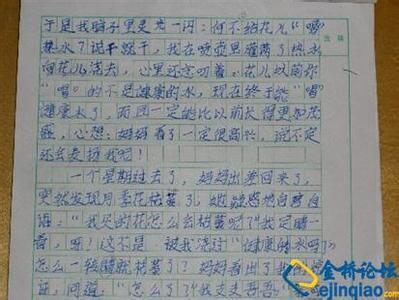 于是我脑子里灵光一闪：何不给花儿“喝”
热水？说干就干，我在喷壶里灌满了热水
向花儿浇去，心里还念叨着：花儿以前你
“喝”的不是健康的水，现在终于能“喝”
健康水了，而且一定能比以前长得更加茂
盛，心想：妈妈看了一定很高兴，说不定
还会表扬我呢！
一个星期过去了，妈妈出差回来了，
突然发现月季花枯萎了，她疑惑地自言自
语：“我买的花怎么会枯萎呢？我定睛一
看，呀！这不是被我浇过“健康的水吗？
怎么一转眼就枯萎了？妈妈看出了我的
证，问道：“怎么了？我支支吾吾
金桥论坛
ejinqiao.com